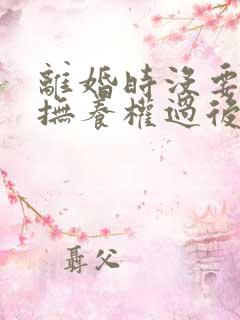 離婚時沒要
撫養權過後
尋父